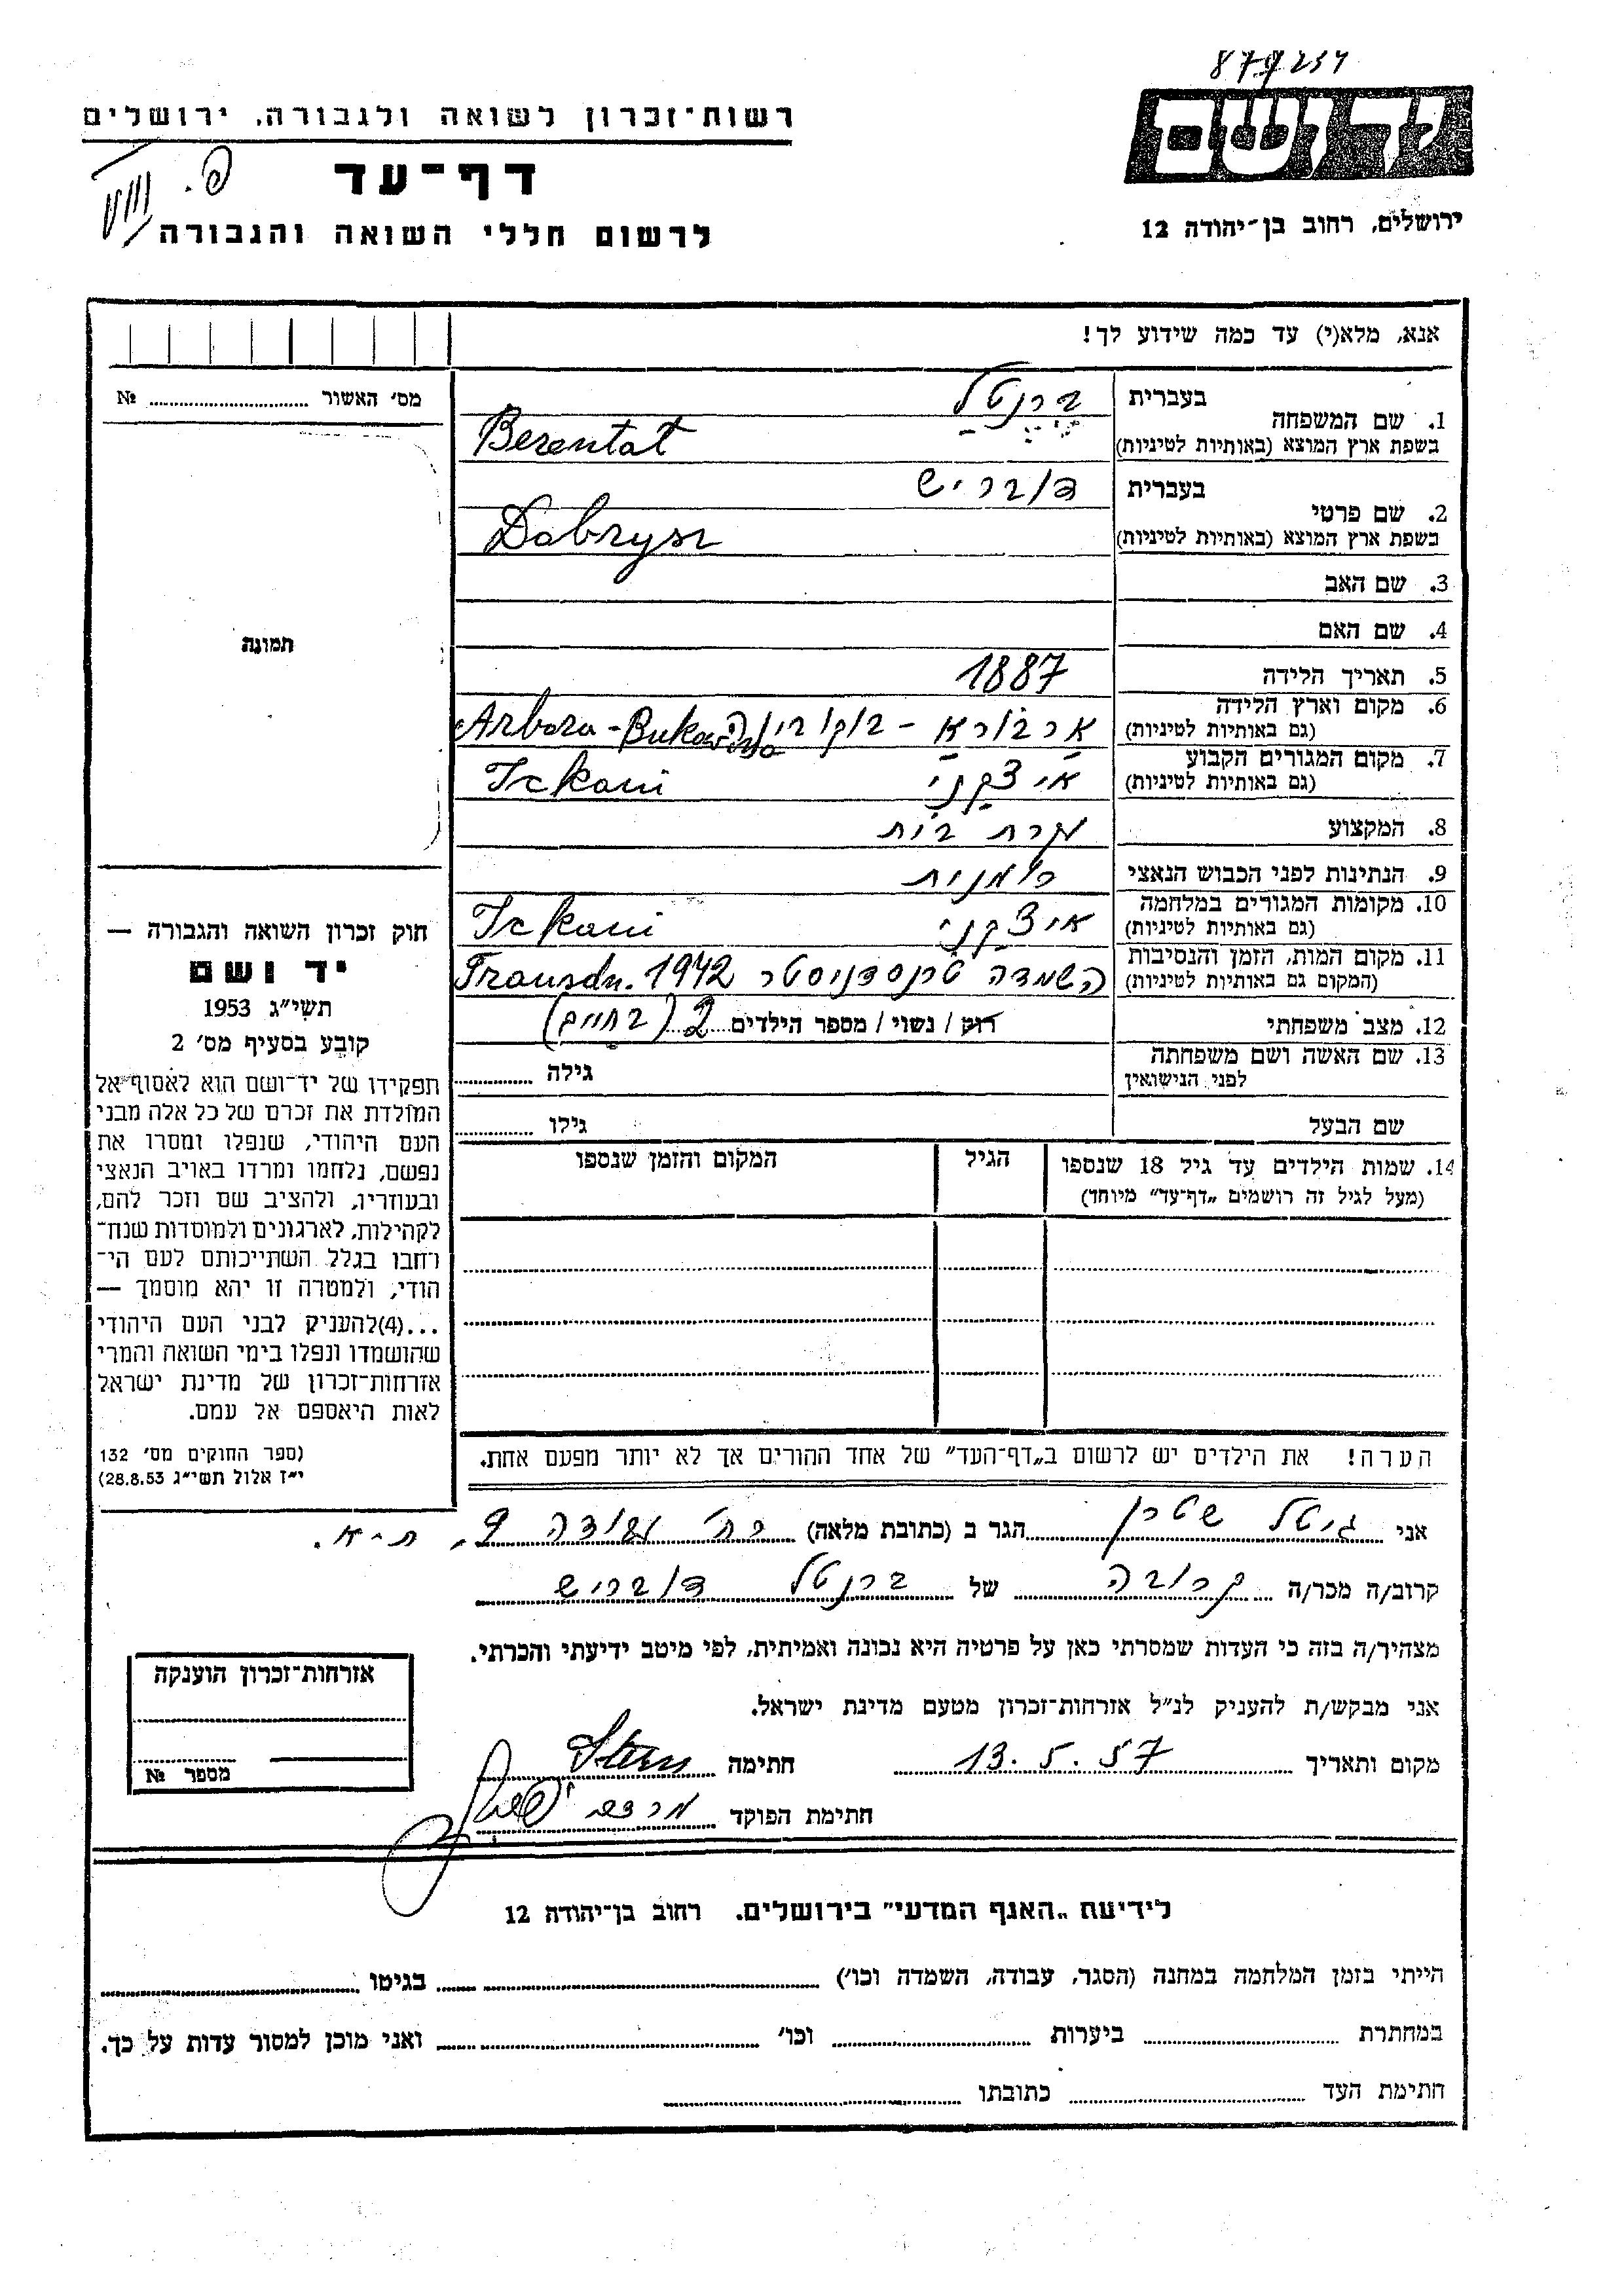 879234
יד ושם
ירושלים, רחוב בן־יהודה 12
רשות־זכרון לשואה ולגבורה, ירושלים
דף־עד
לרשום חללי השואה והגבורה
אנא, מלא(י) עד כמה שידוע לך!
1. שם המשפחה
בעברית ברנטל
בשפת ארץ המוצא (באותיות לטיניות) Berentat
2. שם פרטי
בעברית דובריש
בשפת ארץ המוצא (באותיות לטיניות) Dobrysz
3. שם האב
4. שם האם
5. תאריך הלידה 1887
6. מקום וארץ הלידה
(גם באותיות לטיניות) ארבורא - בוקובינה Arbora - Bukowina
7. מקום המגורים הקבוע
(גם באותיות לטיניות) איצקני Ickani
8. המקצוע עקרת בית
9. הנתינות לפני הכבוש הנאצי רומנית
10. מקומות המגורים במלחמה
(גם באותיות לטיניות) איצקני Ickani
11. מקום המות, הזמן והנסיבות
(המקום גם באותיות לטיניות) השמדה טרנסדניסטר 1942 Transdn.
12. מצב משפחתי רווק / נשוי / מספר הילדים 2 (בחיים)
13. שם האשה ושם משפחתה
לפני הנישואין גילה
שם הבעל גילו
14. שמות הילדים עד גיל 18 שנספו הגיל המקום והזמן שנספו
(מעל לגיל זה רושמים „דף־עד” מיוחד)
הערה! את הילדים יש לרשום ב„דף־העד” של אחד ההורים אך לא יותר מפעם אחת.
מס' האשור №
תמונה
חוק זכרון השואה והגבורה —
יד ושם
תשי"ג 1953
קובע בסעיף מס' 2
תפקידו של יד־ושם הוא לאסוף אל
המולדת את זכרם של כל אלה מבני
העם היהודי, שנפלו ומסרו את
נפשם, נלחמו ומרדו באויב הנאצי
ובעוזריו, ולהציב שם וזכר להם,
לקהילות, לארגונים ולמוסדות שנח־
רחבו בגלל השתייכותם לעם הי־
הודי, ולמטרה זו יהא מוסמך —
...(4)להעניק לבני העם היהודי
שהושמדו ונפלו בימי השואה והמרי
אזרחות־זכרון של מדינת ישראל
לאות היאספם אל עמם.
(ספר החוקים מס' 132
י"ז אלול תשי"ג 28.8.53)
אני גיטל שטרן הגר ב (כתובת מלאה) רח' 9, ת-א.
קרוב/ה מכר/ה קרובה של ברנטל דובריש
מצהיר/ה בזה כי העדות שמסרתי כאן על פרטיה היא נכונה ואמיתית, לפי מיטב ידיעתי והכרתי.
אני מבקש/ת להעניק לנ"ל אזרחות־זכרון מטעם מדינת ישראל.
מקום ותאריך 13.5.57 חתימה Stern
חתימת הפוקד
אזרחות־זכרון הוענקה
מספר №
לידיעת „האגף המדעי” בירושלים. רחוב בן־יהודה 12
הייתי בזמן המלחמה במחנה (הסגר, עבודה, השמדה וכו') בגיטו
במחתרת ביערות וכו' ואני מוכן למסור עדות על כך.
חתימת העד כתובתו